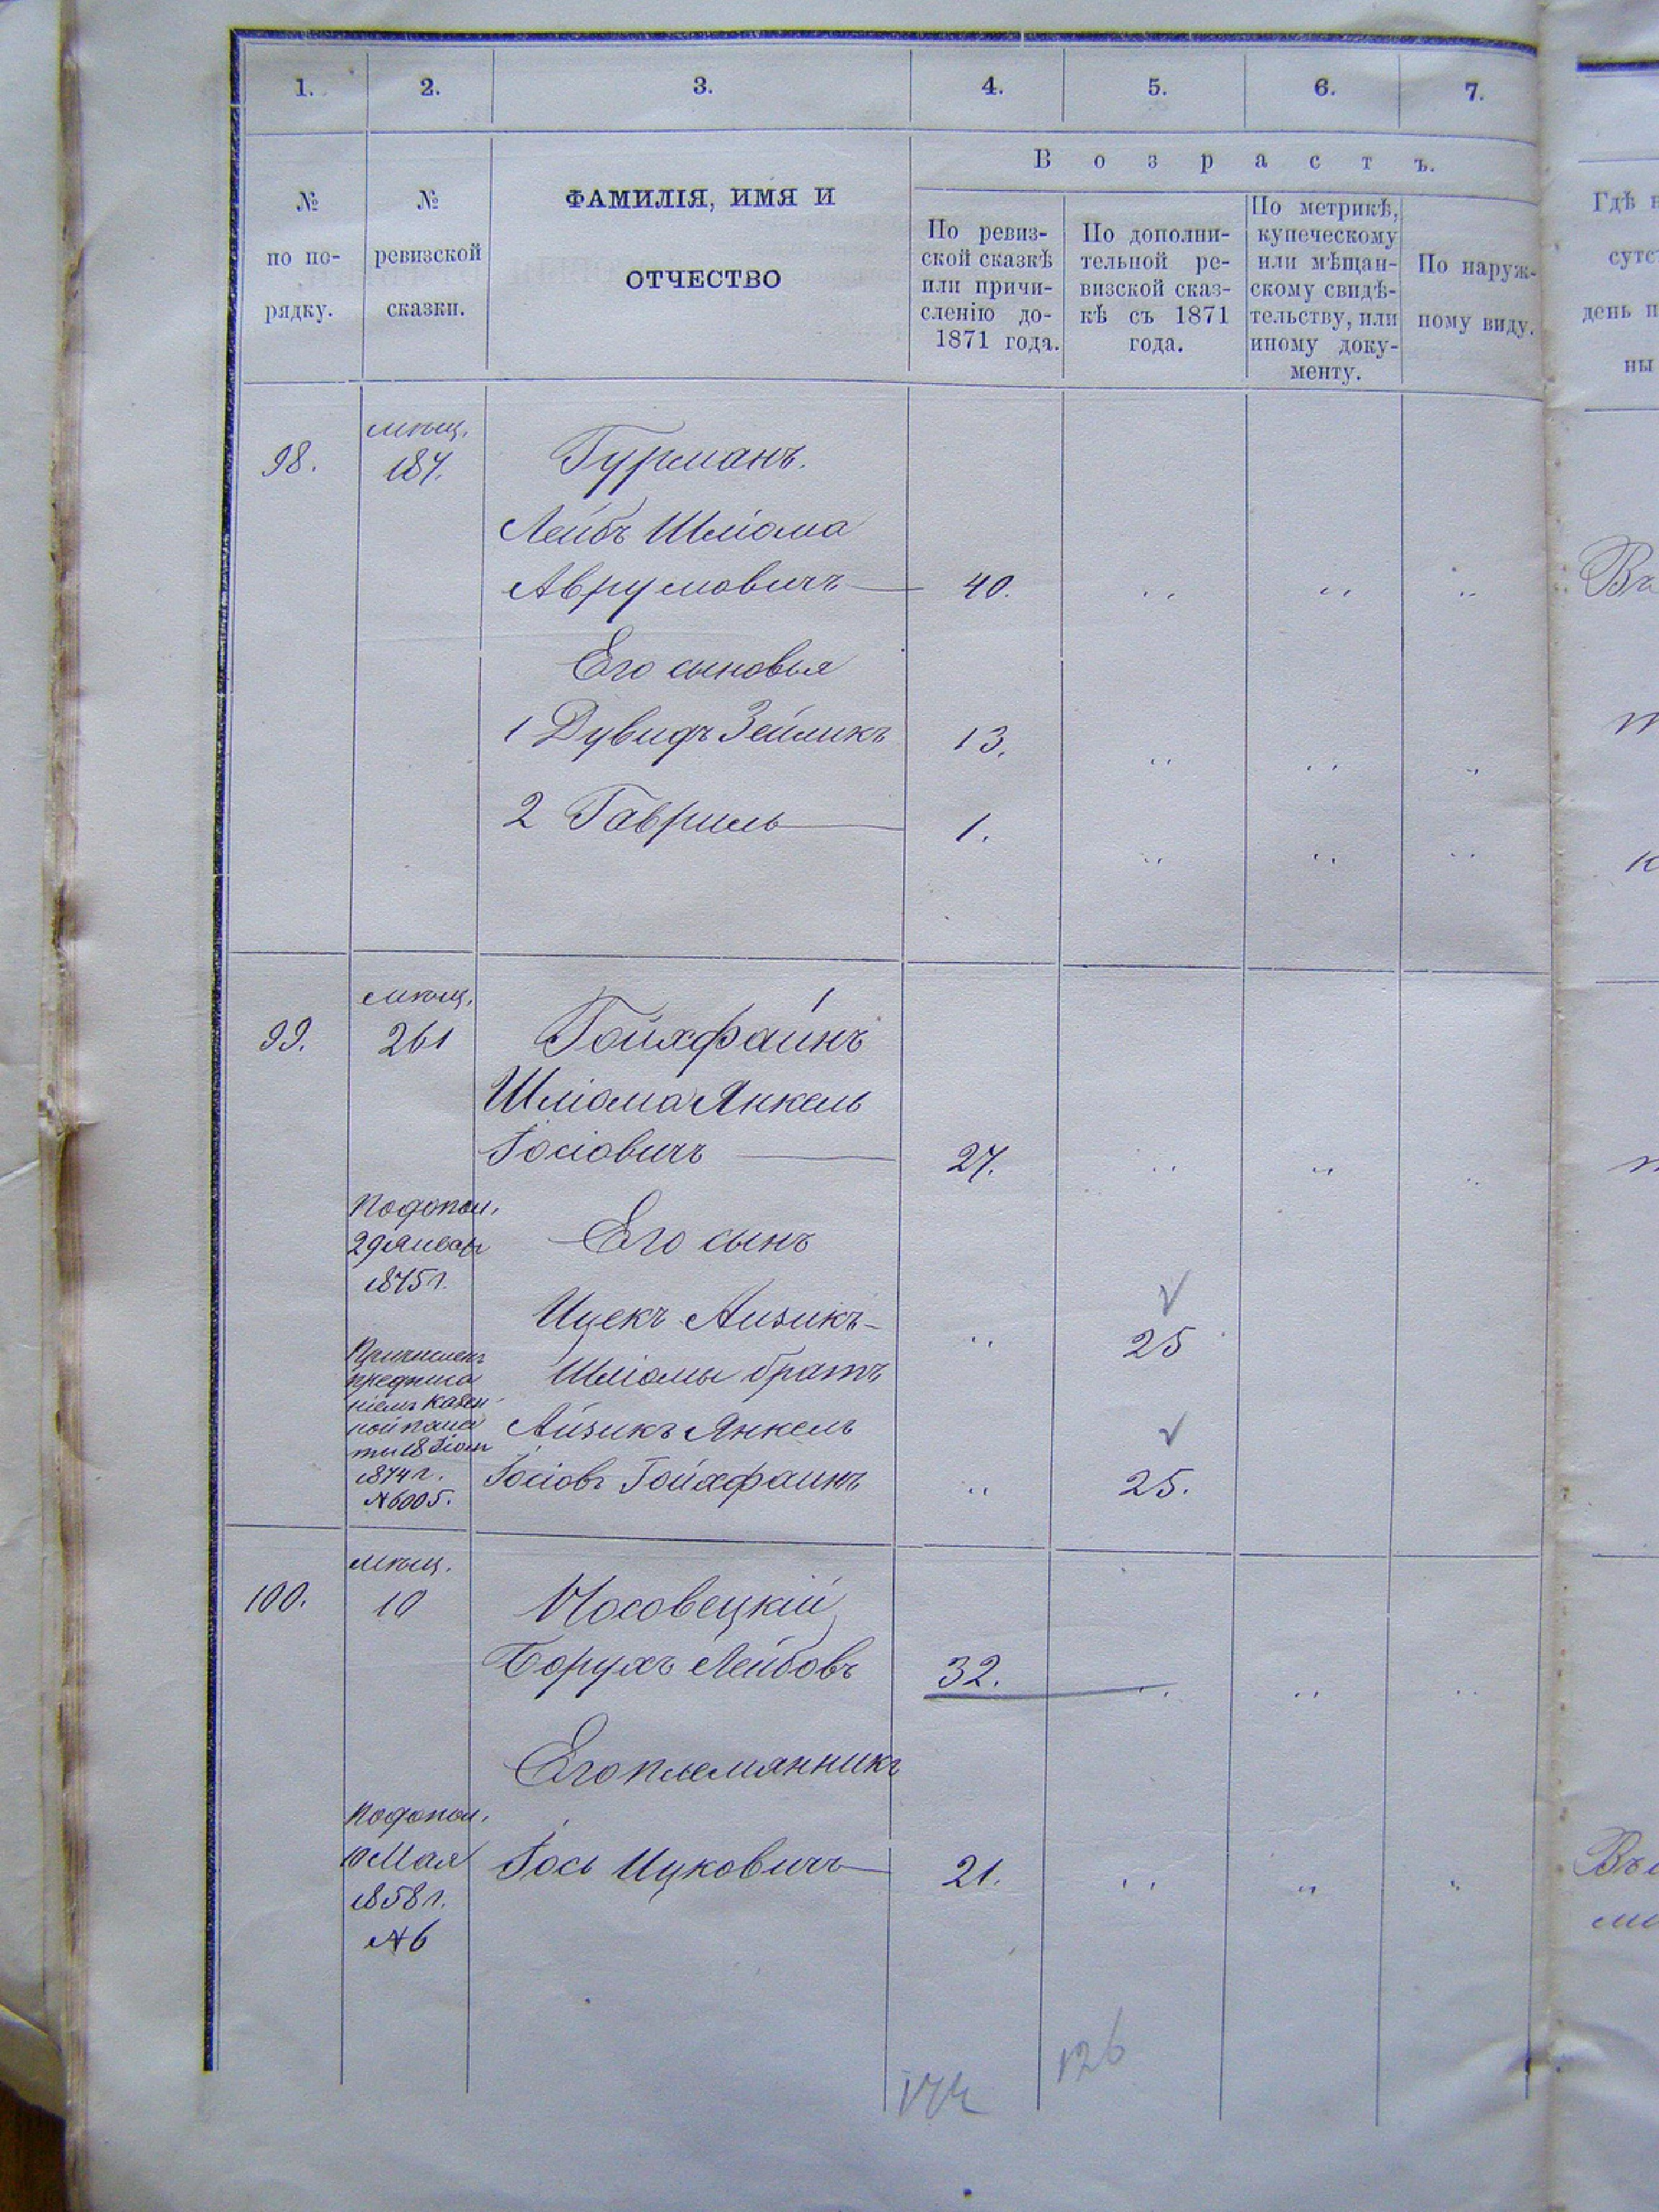 1. 2. 3. 4. 5. 6. 7.
№
по по-
рядку.
№
ревизской
сказки.
ФАМИЛІЯ, ИМЯ И
ОТЧЕСТВО
Возрастъ.
По ревиз-
ской сказкѣ
или причи-
сленію до-
1871 года.
По дополни-
тельной ре-
визской сказ-
кѣ съ 1871
года.
По метрикѣ,
купеческому
или мѣщан-
скому свидѣ-
тельству, или
иному доку-
менту.
По наруж-
ному виду.
Гдѣ
сутс
день п
ны
мѣщ.
98. 187. Гурманъ.
Лейбъ Шліома
Аврумовичъ — 40. " " "
Въ
Его сыновья
1 Дувидъ Зейликъ 13. " " "
2 Гавриль — 1. " " "
мѣщ.
99. 261 Гойхфайнъ
Шліома Янкель
Іосіовичъ — 27. " " "
По допол.
29 Январ
1875 г.
Его сынъ
Ицекъ Аизикъ - " 25
Причисленъ
предписа
ніемъ казен
ной пала
ты 18
1874 г.
№ 6005.
Шліомы братъ
Айзикъ Янкель
Іосіовъ Гойхфаинъ " 25.
мѣщ.
100. 10 Носовецкій
Борухъ Лейбовъ 32. " " "
Его племянникъ
По допол.
10 Мая
1858 г.
№ 6
Іось Ицковичъ — 21. " " "
126